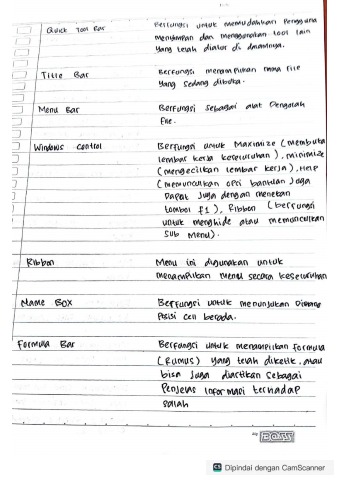 Quick Tool Bar
Berfungsi untuk memudahkan Pengguna
menyimpan dan menggunakan tool lain
yang telah diatur di dalamnya.
Title Bar
Berfungsi menampilkan nama file
yang sedang dibuka.
Menu Bar
Berfungsi sebagai alat Pengolah
File.
Windows control
Berfungsi untuk Maximize (membuka
lembar kerja keseluruhan), minimize
(mengecilkan lembar kerja), Help
(memunculkan opsi bantuan Juga
Dapat Juga dengan menekan
tombol f1), Ribbon (berfungsi
untuk menghide atau memunculkan
Sub Menu).
Ribbon
Menu ini digunakan untuk
menampilkan menu secara keseluruhan
Name Box
Berfungsi untuk menunjukan Dimana
Posisi cell berada.
Formula Bar
Berfungsi untuk menampilkan formula
(Rumus) yang telah diketik, atau
bisa Juga diartikan sebagai
Penjelas Informasi terhadap
BOSS
CS Dipindai dengan CamScanner